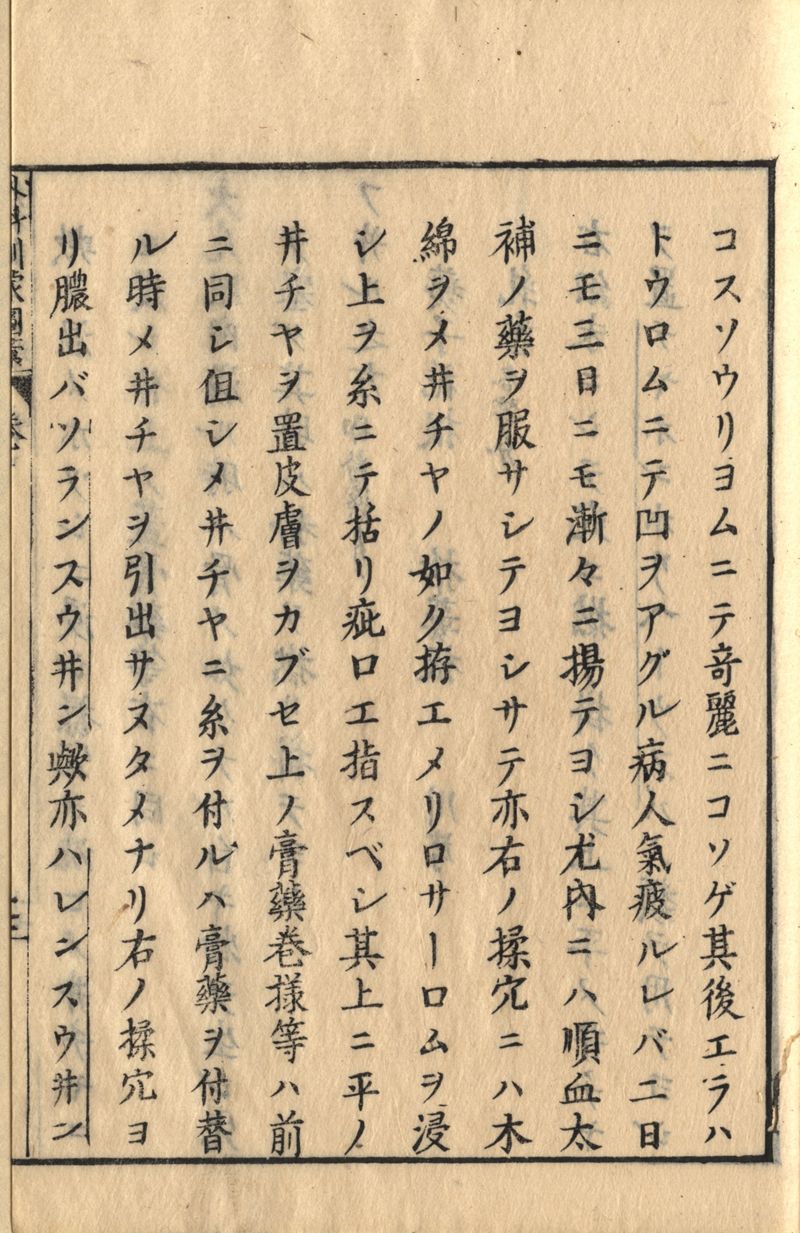 コスソウリヨムニテ竒麗ニコソゲ其後エラハ
トウロムニテ凹ヲアグル病人氣疲ルレバ二日
ニモ三日ニモ漸々ニ揚テヨシ尤内ニハ順血太
補ノ藥ヲ服サシテヨシサテ亦右ノ揉穴ニハ木
綿ヲメ井チヤノ如ク拵エメリロサーロムヲ浸
シ上ヲ糸ニテ括リ疵口エ指スベシ其上ニ平ノ
井チヤヲ置皮膚ヲカブセ上ノ膏藥巻様等ハ前
ニ同シ伹シメ井チヤニ糸ヲ付ルハ膏藥ヲ付替
ル時メ井チヤヲ引出サヌタメナリ右ノ揉穴ヨ
リ膿出バソランスウ井ン歟亦ハレンスウ井ン